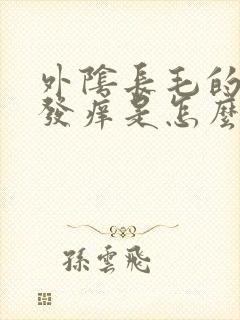 外陰長毛的
發癢是怎麼
孫雲飛